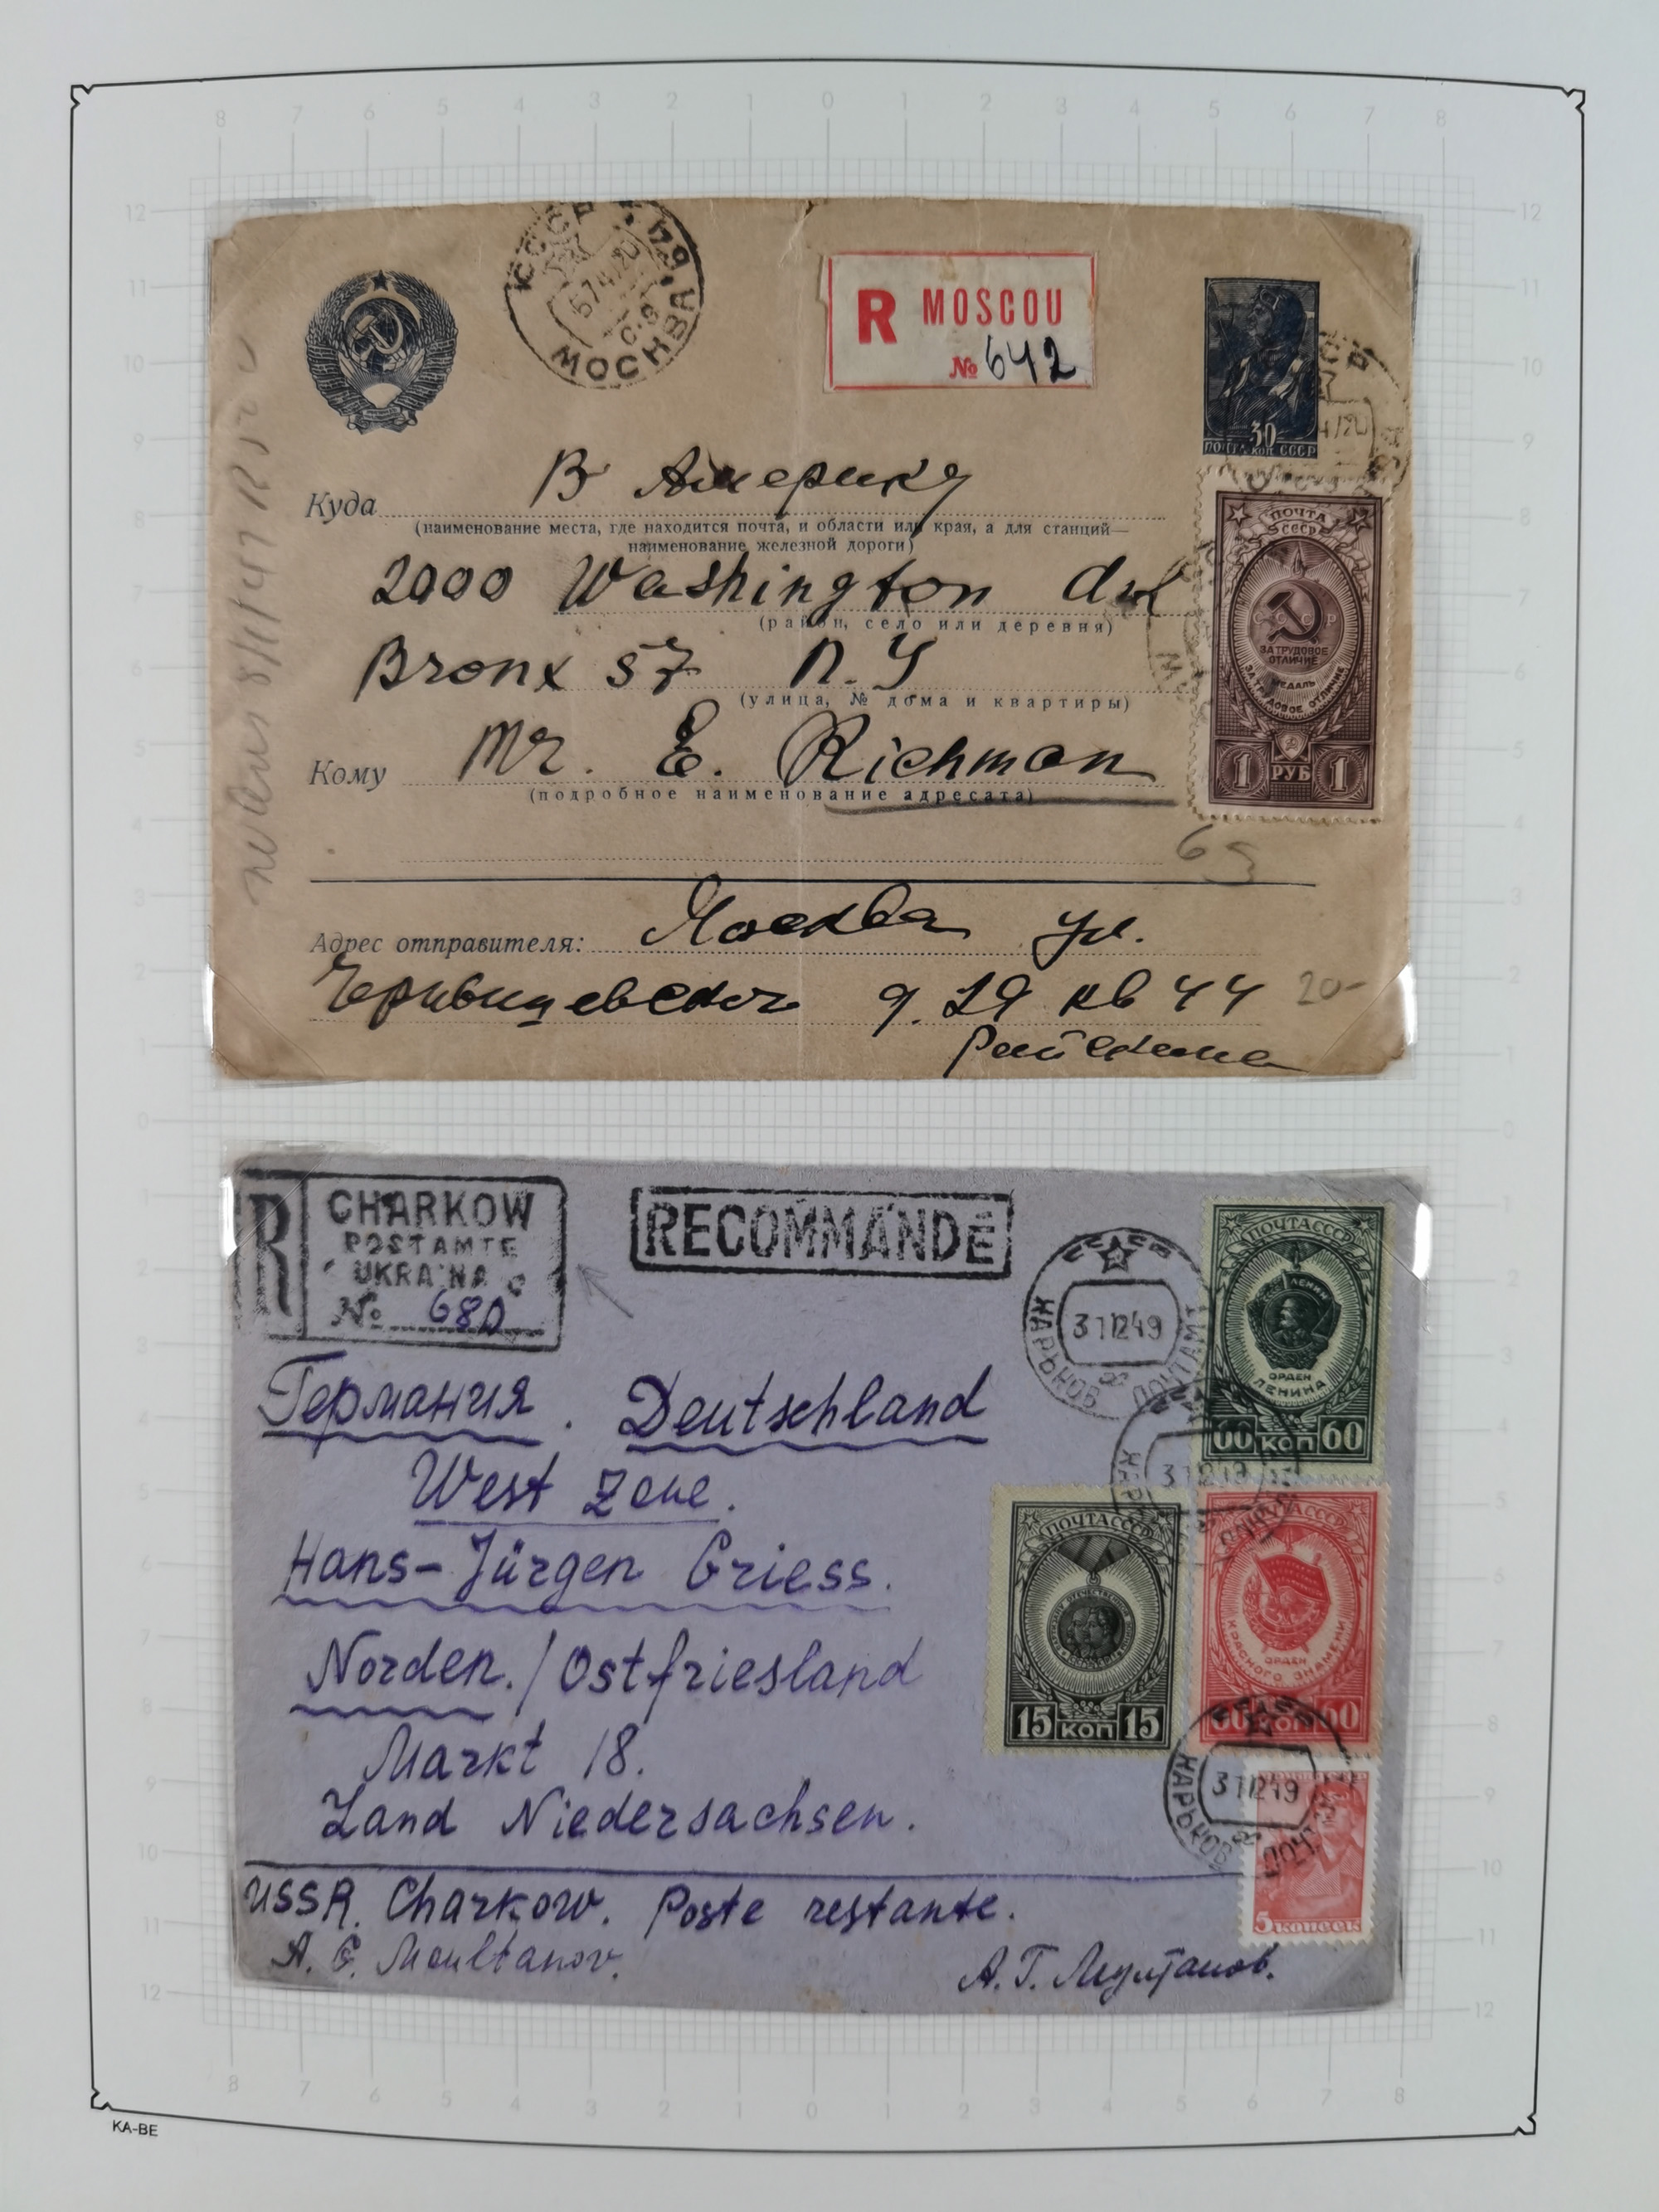 8 7 6 5 4 3 2 1 0 1 2 3 4 5 6 7 8
СССР
МОСКВА
R MOSCOU
№ 642
30
ПОЧТА КОП СССР
Куда В Америку
(наименование места, где находится почта, и области или края, а для станций—
наименование железной дороги)
2000 Washington
(район, село или деревня)
Bronx 57 N.Y
(улица, № дома и квартиры)
Кому Mr. E. Richman
(подробное наименование адресата)
ПОЧТА
СССР
ЗА ТРУДОВОЕ
ОТЛИЧИЕ
МЕДАЛЬ
ЗА ТРУДОВОЕ ОТЛИЧИЕ
1 РУБ 1
Адрес отправителя: Москва ул.
д. 29 кв 44 20-
R CHARKOW
POSTAMTE
UKRAINA
№ 680
RECOMMANDÉ
ХАРЬКОВ ПОЧТАМТ
31 12 49
ПОЧТА СССР
ЛЕНИН
ОРДЕН
ЛЕНИНА
60 КОП 60
Германия. Deutschland
West Zone.
Hans-Jürgen Griess.
Norden. / Ostfriesland
Markt 18.
Land Niedersachsen.
ХАРЬКОВ
31 12 49
ПОЧТА СССР
15 КОП 15
ПОЧТА СССР
ОРДЕН
КРАСНОГО ЗНАМЕНИ
60 КОП 60
ХАРЬКОВ
31 12 49
5 копеек
USSR. Charkow. Poste restante.
A. G. Moultanov.
А. Г. Мултанов.
8 7 6 5 4 3 2 1 0 1 2 3 4 5 6 7 8
KA-BE